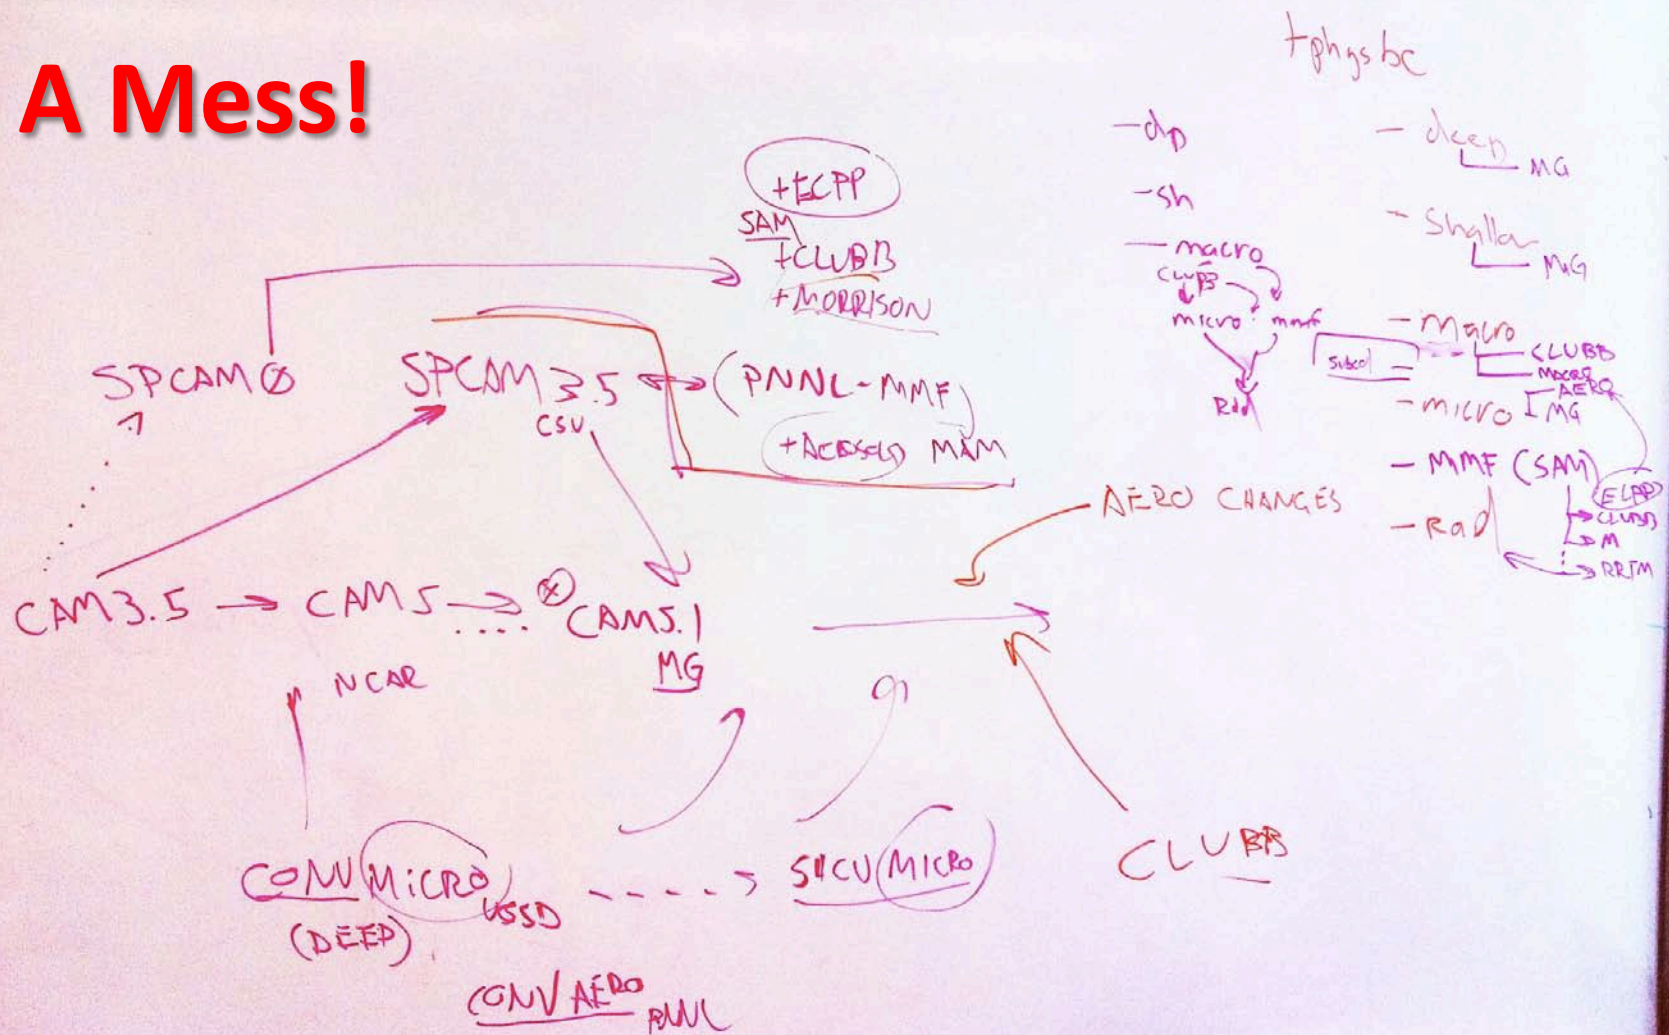 A Mess!
+ECPP
SAM
+CLUBB
+MORRISON
SPCAM0
SPCAM 3.5
CSU
(PNNL-MMF)
+AEROSOLS MAM
CAM3.5
CAM5
CAM5.1
MG
NCAR
AERO CHANGES
CONV MICRO
(DEEP)
SHCU MICRO
CLUBB
CONV AERO
PNNL
tphysbc
- dp
- sh
- macro
CLUBB
micro mmf
Rad
- deep
MG
- Shallow
MG
- Macro
CLUBB
MACRO
Subcol
- micro
AERO
MG
- MMF (SAM)
ECPP
CLUBB
M
RRTM
- Rad